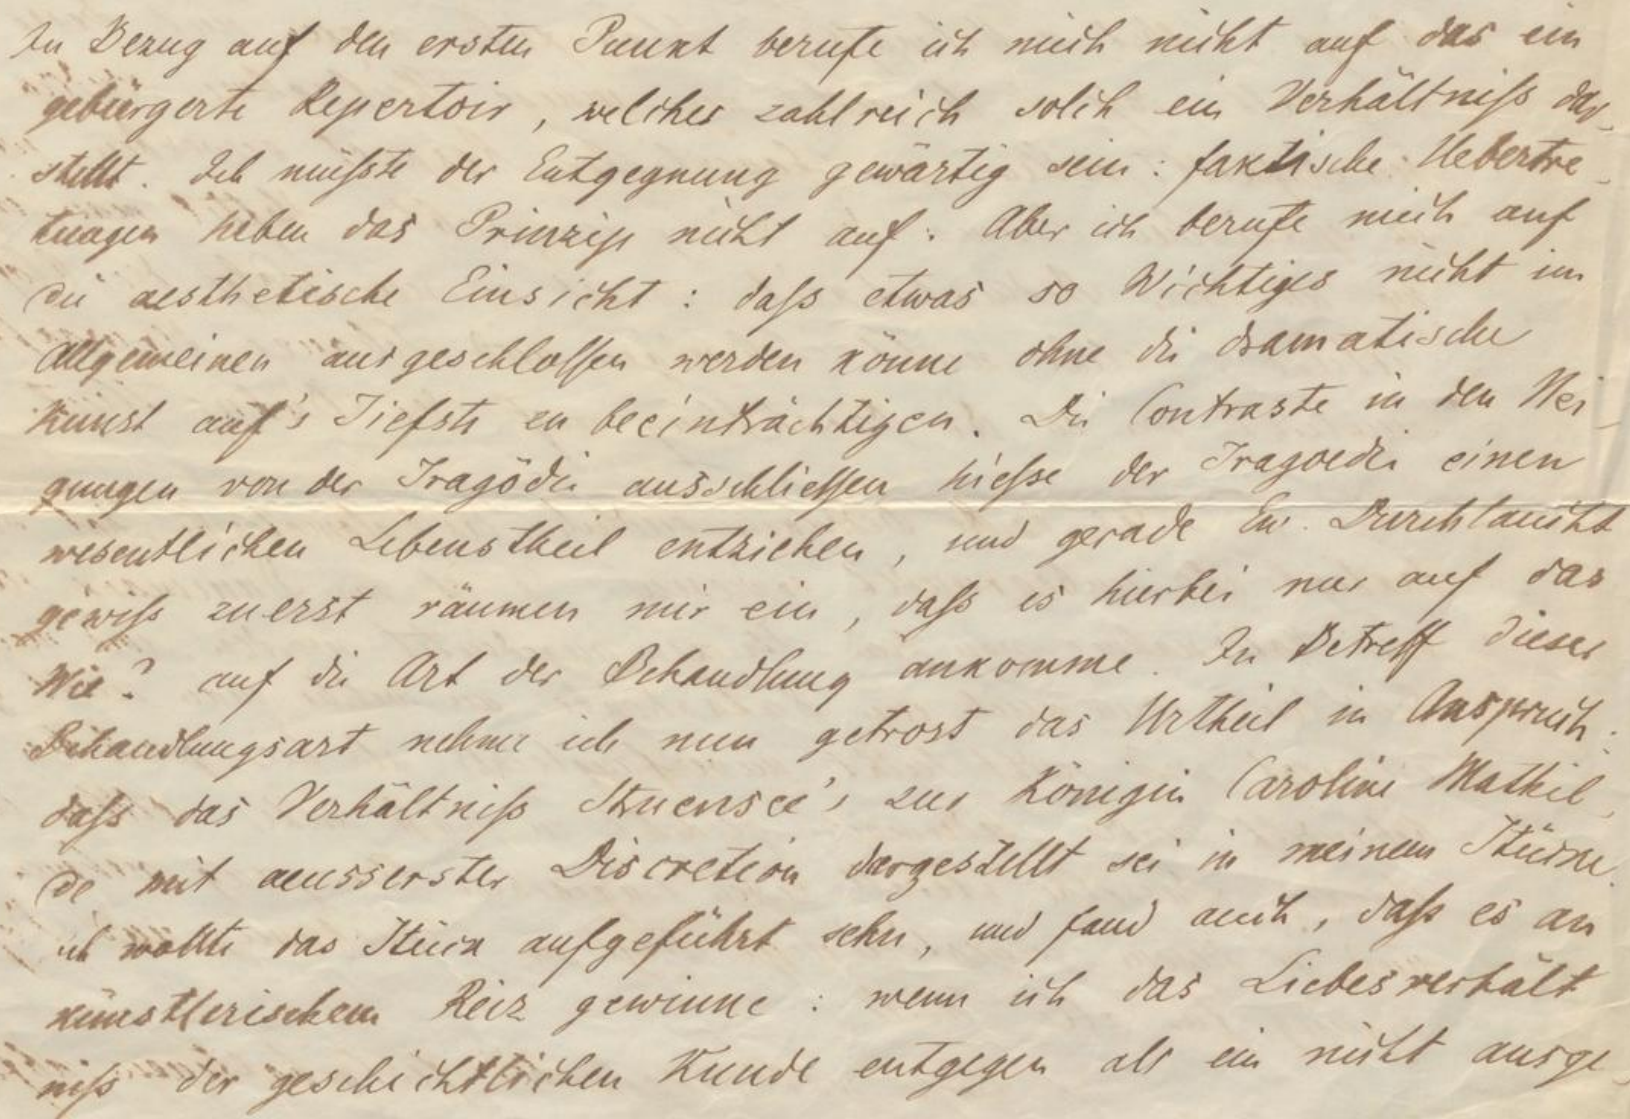 In Bezug auf den ersten Punkt berufe ich mich nicht auf das ein
gebürgerte Repertoir, welches zahlreich solch ein Verhältniß dar-
stellt. Ich müßte der Entgegnung gewärtig sein: faktische Uebertre-
tungen heben das Prinzip nicht auf. Aber ich berufe mich auf
die aesthetische Einsicht: daß etwas so Wichtiges nicht im
Allgemeinen ausgeschlossen werden könne ohne die dramatische
Kunst auf's Tiefste zu beeinträchtigen. Die Contraste in den Nei-
gungen von der Tragödie ausschliessen hiesse der Tragoedie einen
wesentlichen Lebenstheil entziehen, und gerade Ew. Durchlaucht
gewiß zuerst räumen mir ein, daß es hierbei nur auf das
Wie? auf die Art der Behandlung ankomme. In Betreff dieser
Behandlungsart nehme ich nun getrost das Urtheil in Anspruch:
daß das Verhältniß Struensee's zur Königin Caroline Mathil-
de mit aeusserster Discretion dargestellt sei in meinem Stücke.
ich wollte das Stück aufgeführt sehn, und fand auch, daß es an
künstlerischem Reiz gewinne: wenn ich das Liebesverhält
niß der geschichtlichen Kunde entgegen als ein nicht ausge-